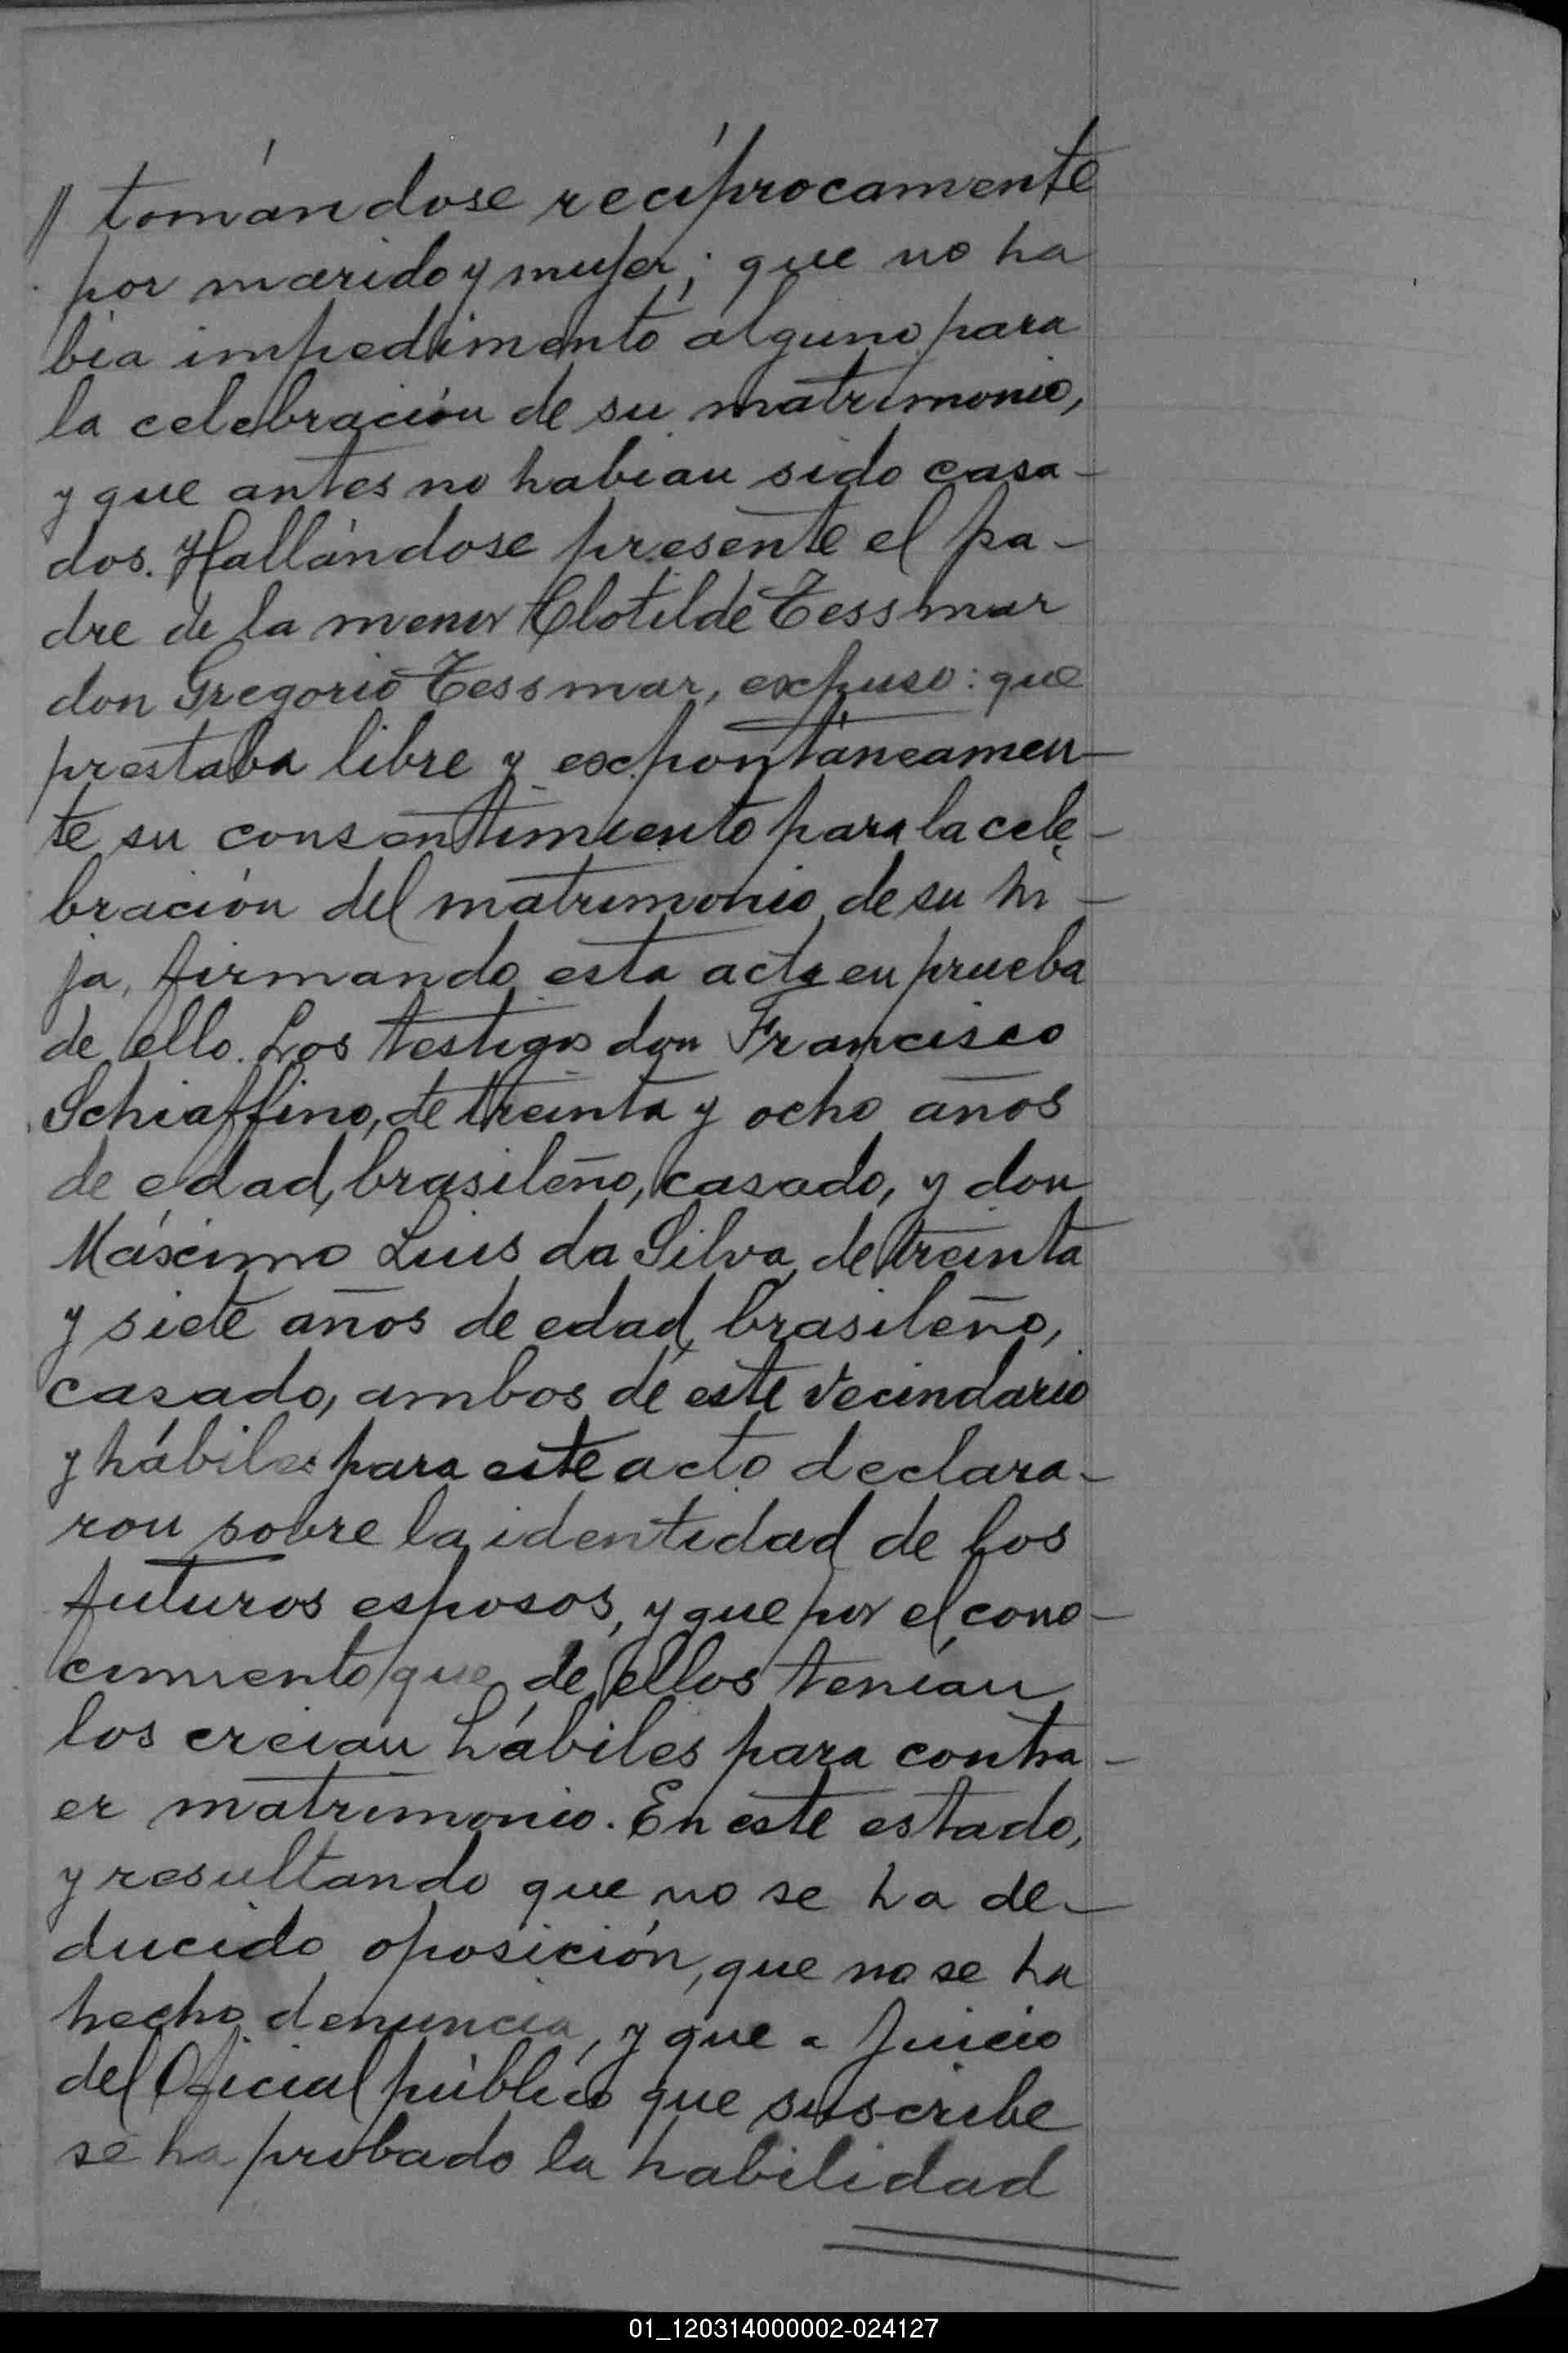 // tomándose recíprocamente
por marido y mujer; que no ha
bía impedimento alguno para
la celebración de su matrimonio,
y que antes no habian sido casa-
dos. Hallándose presente el pa-
dre de la menor Clotilde Tessmar
don Gregorio Tessmar, expuso: que
prestaba libre y expontáneamen-
te su consentimiento para la cele-
bración del matrimonio de su hi-
ja, firmando esta acta en prueba
de ello. Los testigos don Francisco
Schiaffino, de treinta y ocho años
de edad, brasileño, casado, y don
Máximo Luis da Silva, de treinta
y siete años de edad, brasileño,
casado, ambos de este vecindario
y hábiles para este acto declara-
ron sobre la identidad de los
futuros esposos, y que por el cono-
cimiento que de ellos tenían
los creian hábiles para contra-
er matrimonio. En este estado,
y resultando que no se ha de-
ducido oposición, que no se ha
hecho denuncia, y que a juicio
del Oficial público que suscribe
se ha probado la habilidad
01_120314000002-024127